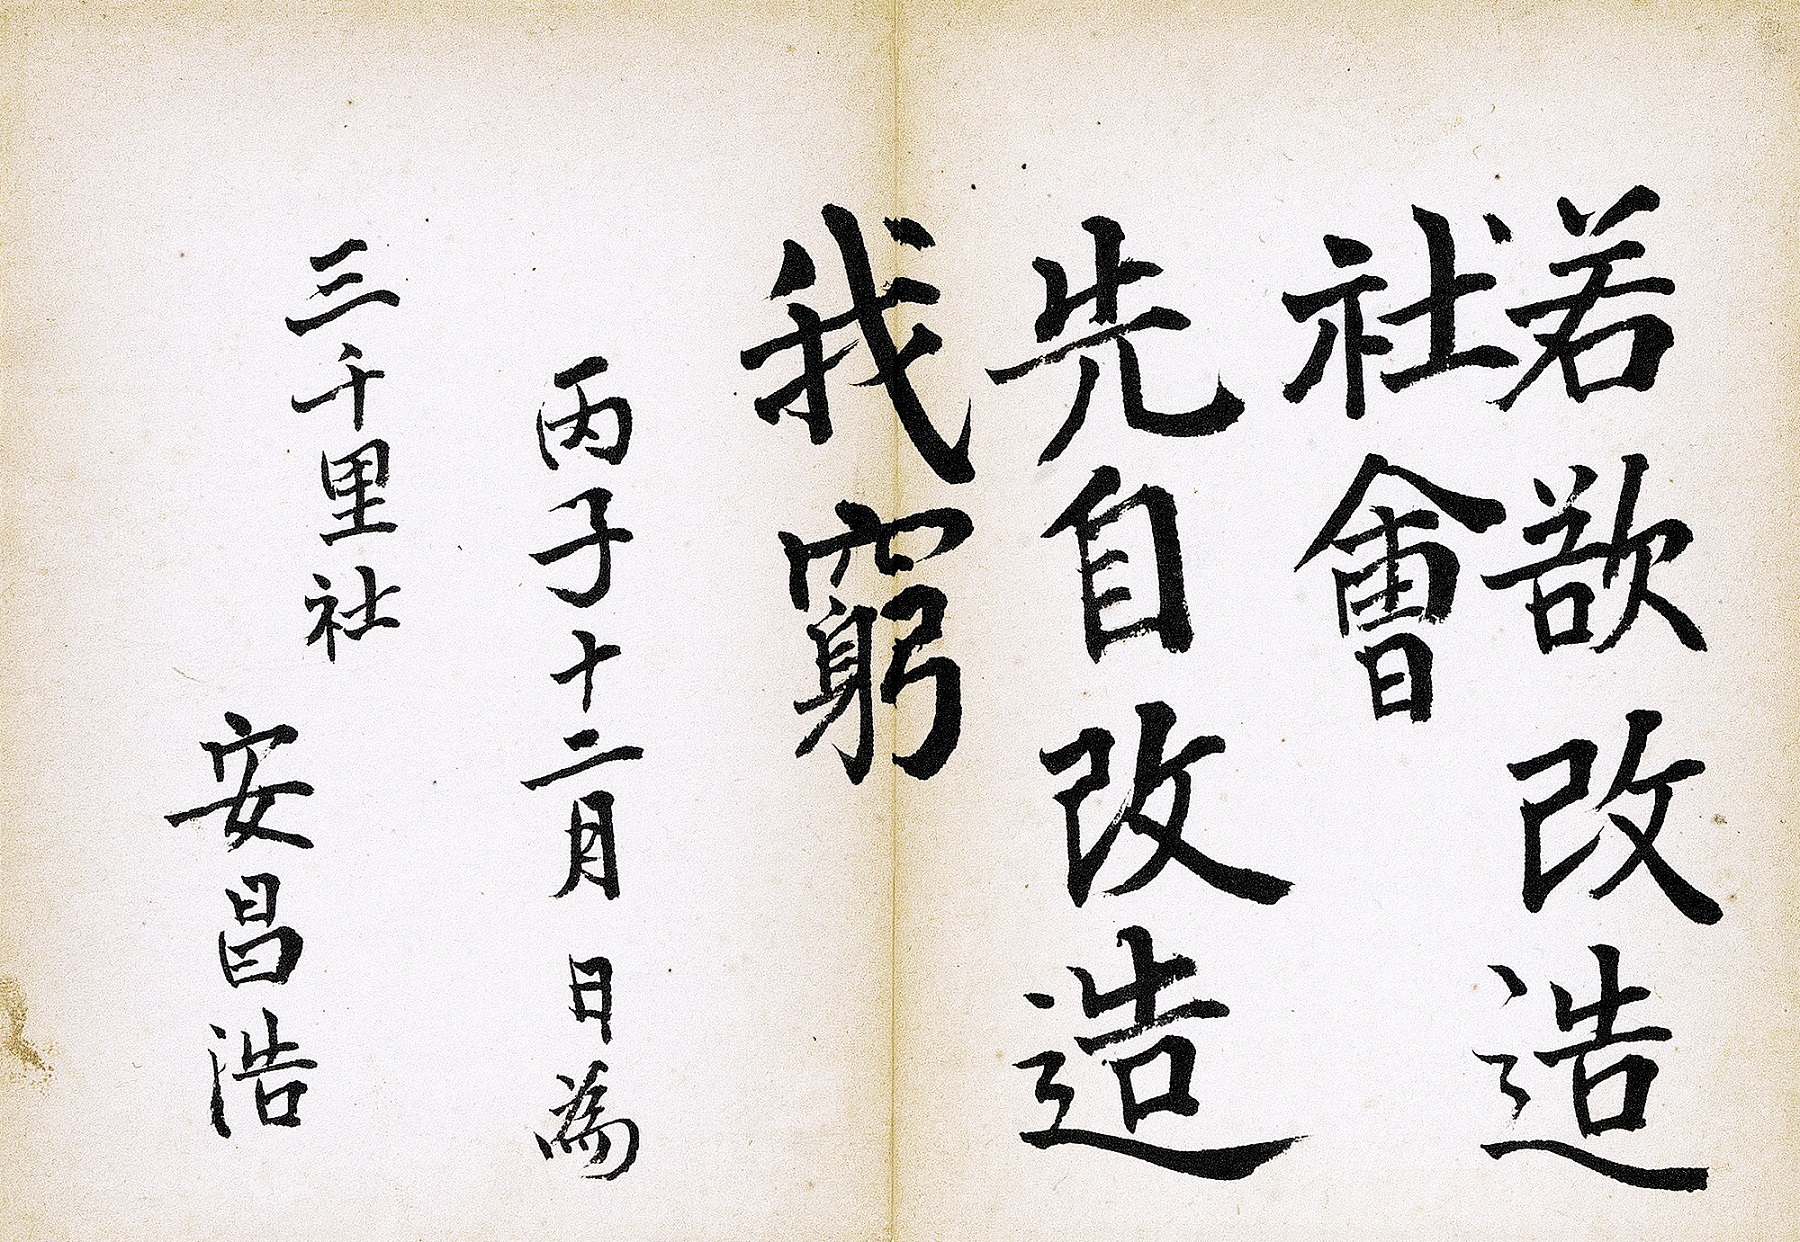 若欲改造
社會
先自改造
我窮
丙子十二月 日為
三千里社
安昌浩